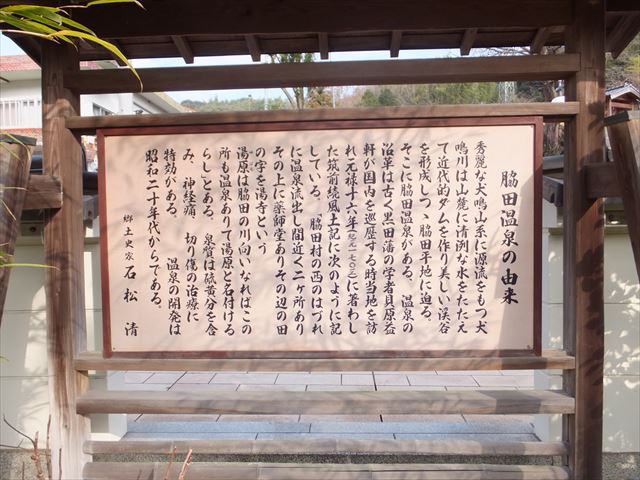 脇田温泉の由来
秀麗な犬鳴山系に源流をもつ犬
鳴川は山麓に清冽な水をたたえ
て近代的ダムを作り美しい渓谷
を形成しつゝ脇田平地に迫る。
そこに脇田温泉がある、温泉の
沿革は古く黒田藩の学者貝原益
軒が国内を巡歴する時当地を訪
れ元禄十六年(紀元一七〇三)に著わし
た筑前続風土記に次のように記
している。脇田村の西のはづれ
に温泉流出し間近く二ヶ所あり
その上に薬師堂ありその辺の田
の字を湯寺という
湯原は脇田の川向いなればこの
所も温泉ありて湯原と名付ける
らしとある。泉質は硫黄分を含
み、神経痛、切り傷の治療に
特効がある。温泉の開発は
昭和二十年代からである。
郷土史家 石松 清